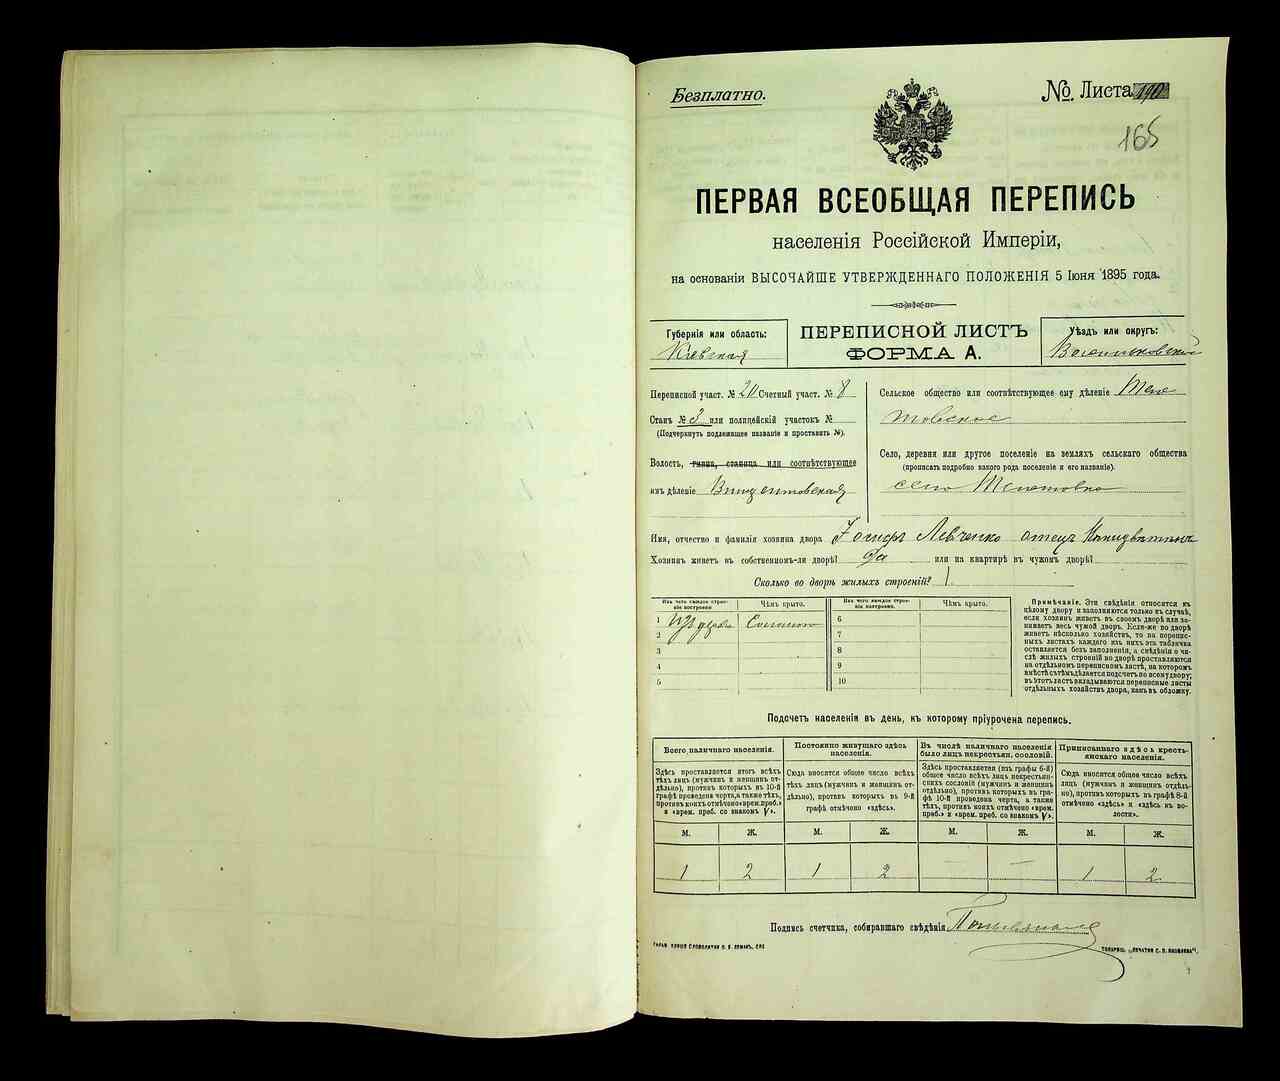 Безплатно.
№. Листа 190
165
ПЕРВАЯ ВСЕОБЩАЯ ПЕРЕПИСЬ
населенія Россійской Имперіи,
на основаніи ВЫСОЧАЙШЕ УТВЕРЖДЕННАГО ПОЛОЖЕНІЯ 5 Іюня 1895 года.
Губернія или область:
Кіевская
ПЕРЕПИСНОЙ ЛИСТЪ
ФОРМА А.
Уѣздъ или округъ:
Васильковскій
Переписной участ. № 20 Счетный участ. № 8
Станъ № 3 или полицейскій участокъ №
(Подчеркнуть подлежащее названіе и проставить №).
Волость, гмина, станица или соотвѣтствующее
имъ дѣленіе Винцентовская
Сельское общество или соотвѣтствующее ему дѣленіе
Село, деревня или другое поселеніе на земляхъ сельскаго общества
(прописать подробно какого рода поселеніе и его названіе).
село
Имя, отчество и фамилія хозяина двора Левченко отецъ
Хозяинъ живетъ въ собственномъ-ли дворѣ? Да или на квартирѣ въ чужомъ дворѣ?
Сколько во дворѣ жилыхъ строеній? 1
Изъ чего каждое строеніе построено.
Чѣмъ крыто.
1 Изъ дерева Соломою
2
3
4
5
Изъ чего каждое строеніе построено.
Чѣмъ крыто.
6
7
8
9
10
Примѣчаніе. Эти свѣдѣнія относятся къ
цѣлому двору и заполняются только въ случаѣ,
если хозяинъ живетъ въ своемъ дворѣ или занимаетъ весь чужой дворъ. Если-же во дворѣ
живетъ нѣсколько хозяйствъ, то на переписныхъ листахъ каждаго изъ нихъ эта табличка
оставляется безъ заполненія, а свѣдѣнія о числѣ жилыхъ строеній во дворѣ проставляются
на отдѣльномъ переписномъ листѣ, на которомъ
вмѣстѣ съ тѣмъ дѣлается подсчетъ по всему двору;
въ этотъ листъ вкладываются переписные листы
отдѣльныхъ хозяйствъ двора, какъ въ обложку.
Подсчетъ населенія въ день, къ которому пріурочена перепись.
Всего наличнаго населенія.
Здѣсь проставляется итогъ всѣхъ
тѣхъ лицъ (мужчинъ и женщинъ отдѣльно), противъ которыхъ въ 10-й
графѣ проведена черта, а также тѣхъ,
противъ коихъ отмѣчено «врем. преб.»
и «врем. преб. со знакомъ V».
Постоянно живущаго здѣсь
населенія.
Сюда вносится общее число всѣхъ
тѣхъ лицъ (мужчинъ и женщинъ отдѣльно), противъ которыхъ въ 9-й
графѣ отмѣчено «здѣсь».
Въ числѣ наличнаго населенія
было лицъ некрестьян. сословій.
Здѣсь проставляется (изъ графы 6-й)
общее число всѣхъ лицъ некрестьянскихъ сословій (мужчинъ и женщинъ
отдѣльно), противъ которыхъ въ графѣ 10-й проведена черта, а также
тѣхъ, противъ коихъ отмѣчено «врем.
преб.» и «врем. преб. со знакомъ V».
Приписаннаго здѣсь крестьянскаго населенія.
Сюда вносится общее число всѣхъ
лицъ (мужчинъ и женщинъ отдѣльно), противъ которыхъ въ графѣ 8-й
отмѣчено «здѣсь» и «здѣсь въ волости».
М. Ж. М. Ж. М. Ж. М. Ж.
1 2 1 2 — — 1 2
Подпись счетчика, собиравшаго свѣдѣнія